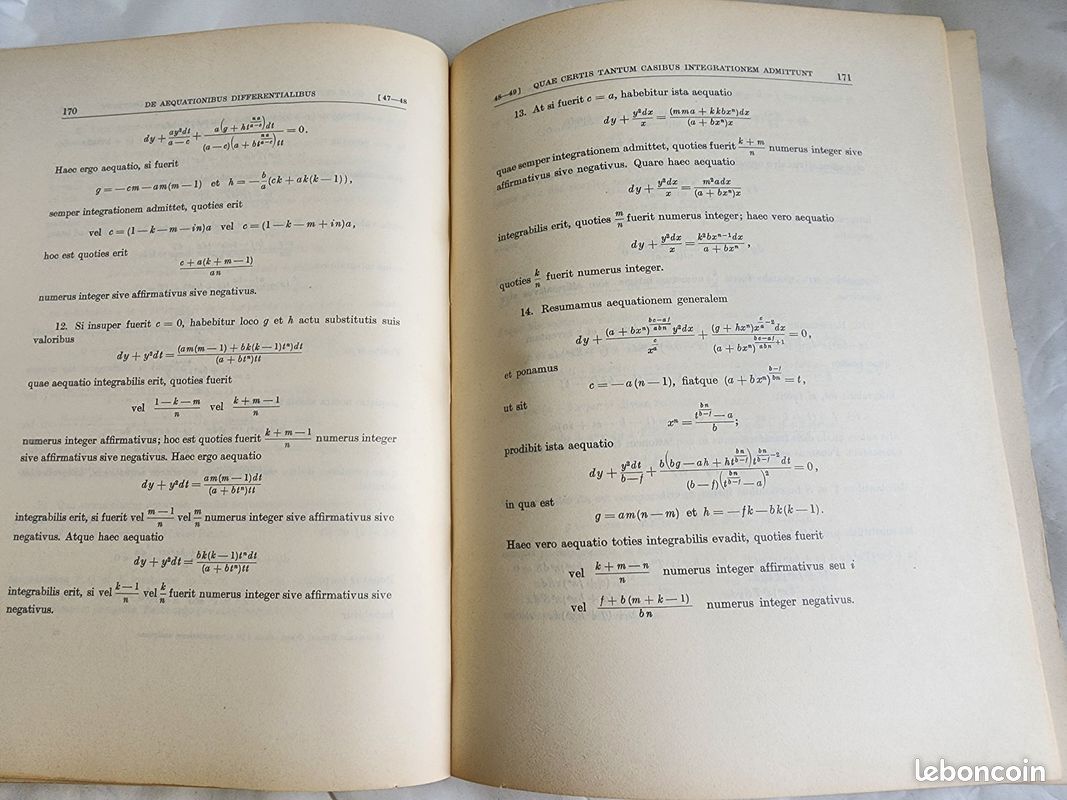 170 DE AEQUATIONIBUS DIFFERENTIALIBUS [47—48
dy + ay²dt/(a—c) + a(g + ht^(na/(a—c)))dt/((a—c)(a + bt^(na/(a—c)))tt) = 0.
Haec ergo aequatio, si fuerit
g = —cm—am(m—1) et h = —b/a(ck + ak(k—1)),
semper integrationem admittet, quoties erit
vel c = (1—k—m—in)a vel c = (1—k—m + in)a,
hoc est quoties erit
(c + a(k + m—1))/an
numerus integer sive affirmativus sive negativus.
12. Si insuper fuerit c = 0, habebitur loco g et h actu substitutis suis
valoribus
dy + y²dt = (am(m—1) + bk(k—1)tⁿ)dt/((a + btⁿ)tt)
quae aequatio integrabilis erit, quoties fuerit
vel (1—k—m)/n vel (k + m—1)/n
numerus integer affirmativus; hoc est quoties fuerit (k + m—1)/n numerus integer
sive affirmativus sive negativus. Haec ergo aequatio
dy + y²dt = am(m—1)dt/((a + btⁿ)tt)
integrabilis erit, si fuerit vel (m—1)/n vel m/n numerus integer sive affirmativus sive
negativus. Atque haec aequatio
dy + y²dt = bk(k—1)tⁿdt/((a + btⁿ)tt)
integrabilis erit, si vel (k—1)/n vel k/n fuerit numerus integer sive affirmativus sive
negativus.
48—49] QUAE CERTIS TANTUM CASIBUS INTEGRATIONEM ADMITTUNT 171
13. At si fuerit c = a, habebitur ista aequatio
dy + y²dx/x = (mma + kkbxⁿ)dx/((a + bxⁿ)x)
quae semper integrationem admittet, quoties fuerit (k + m)/n numerus integer sive
affirmativus sive negativus. Quare haec aequatio
dy + y²dx/x = m²adx/((a + bxⁿ)x)
integrabilis erit, quoties m/n fuerit numerus integer; haec vero aequatio
dy + y²dx/x = k²bxⁿ⁻¹dx/(a + bxⁿ),
quoties k/n fuerit numerus integer.
14. Resumamus aequationem generalem
dy + (a + bxⁿ)^((bc—af)/abn) y²dx/x^(c/a) + (g + hxⁿ)x^(c/a—2)dx/(a + bxⁿ)^((bc—af)/abn + 1) = 0,
et ponamus
c = —a(n—1), fiatque (a + bxⁿ)^((b—f)/bn) = t,
ut sit
xⁿ = (t^(bn/(b—f)) — a)/b;
prodibit ista aequatio
dy + y²dt/(b—f) + b(bg—ah + ht^(bn/(b—f)))t^(bn/(b—f)—2)dt/((b—f)(t^(bn/(b—f)) — a)²) = 0,
in qua est
g = am(n—m) et h = —fk—bk(k—1).
Haec vero aequatio toties integrabilis evadit, quoties fuerit
vel (k + m—n)/n numerus integer affirmativus seu i
vel (f + b(m + k—1))/bn numerus integer negativus.
leboncoin